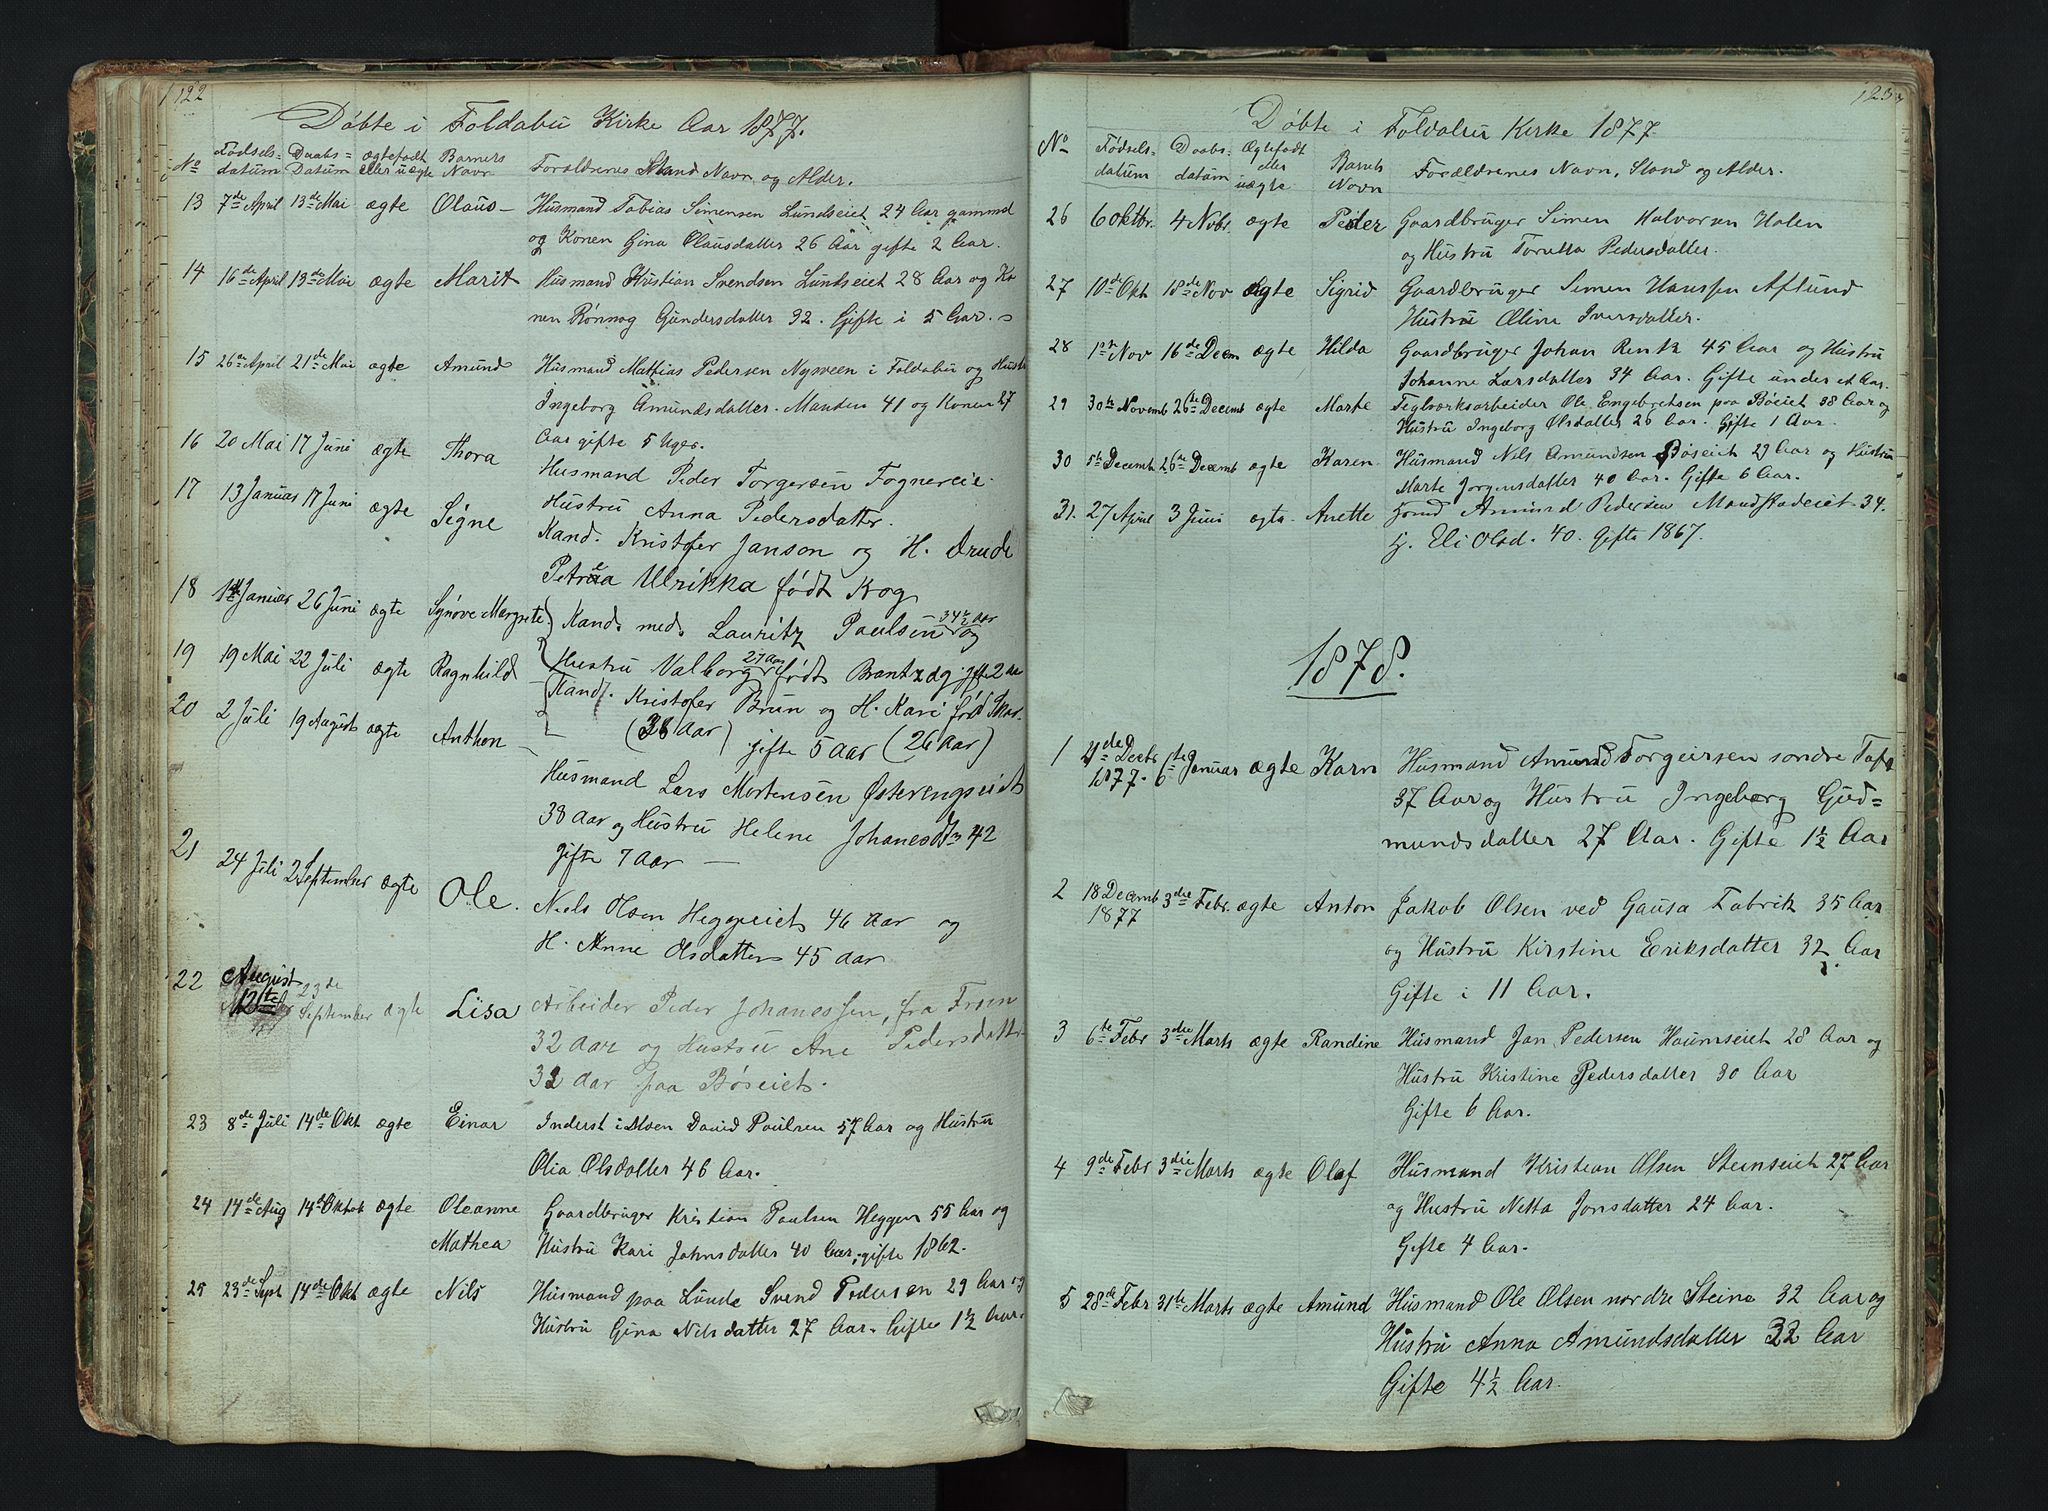 122
Døbte i Foldabu Kirke Aar 1877.
No Fødsels-datum Daabs-Datum ægtefødt eller uægte Barnets Navn Foræld­renes Stand Navn og Alder.
13 7de April 13de Mai ægte Olaus - Husmand Tobias Simensen Lundseiet 24 Aar gammel
og Konen Gina Olausdatter 26 Aar gifte 2 Aar.
14 16de April 13de Mai ægte Marit Husmand Kristian Svendsen Lundseiet 28 Aar og Ko
nen Rønnog Gundersdatter 32. Gifte i 5 Aar.
15 26de April 21de Mai ægte Amund Husmand Mathias Pedersen Nysveen i Foldabu og Hustr
Ingeborg Amundsdatter. Manden 41 og Konen 27
Aar gifte 5 Uger.
16 20 Mai 17 Juni ægte Thora Husmand Peder Torgersen Fogner­eie.
Hustru Anna Pedersdatter.
17 13 Januar 17 Juni ægte Signe Kand. Kristofer Janson og H. Drude
Petrea Ulrikka født Krog
18 1ste Januar 26 Juni ægte Synøve Margrete. Kand. med. Lauritz Paulsen 34½ Aar og
Hustru Valborg 27 Aar født Brantzæg gifte 2 Aar
19 19 Mai 22 Juli ægte Ragnhild Kand. Kristofer Brun og H. Kari født Skar-
(38 Aar) gifte 5 Aar (26 Aar)
20 2 Juli 19 August ægte Anthon Husmand Lars Mortensen Østerengseiet
38 Aar og Hustru Helene Johanesdtr 42
gifte 7 Aar -
21 24 Juli 2 September ægte Ole. Niels Olsen Heggeeiet 46 Aar og
H. Anne Olsdatter 45 Aar
22 August 12te 23de September ægte Lisa Arbeider Peder Johanessen, fra Fron
32 Aar og Hustru Ane Pedersdatter
32 Aar paa Bøseiet.
23 8de Juli 14de Okt ægte Einar Inderst i Moen David Paulsen 57 Aar og Hustru
Olia Olsdatter 46 Aar.
24 14de Aug 14de Oktob ægte Oleanne Mathea Gaardbruger Kristian Paulsen Heggen 55 Aar og
Hustru Kari Johnsdatter 40 Aar, gifte 1862.
25 23de Sept 14de Okt ægte Nils Husmand paa Lunde Svend Pedersen 29 Aar og
Hustru Gina Nilsdatter 27 Aar. Gifte 1½ Aar.
123
Døbte i Foldabu Kirke 1877
No Fødsels-datum Daabs-datum Ægtefødt eller uægte Barnets Navn Forældrenes Navn, Stand og Alder.
26 6 Oktbr. 4 Nobr. ægte Peder Gaardbruger Simen Halvorsen Holen
og Hustru Toretta Pedersdatter.
27 10de Okt 18de Nov ægte Sigrid Gaardbruger Simen Hanssen Aflund
Hustru Oline Iversdatter.
28 1ste Nov 16de Decem ægte Hilda Gaardbruger Johan Renk 45 Aar og Hustru
Johanne Larsdatter 34 Aar. Gifte under et Aar.
29 30te Novemb 26de Decemb ægte Marte Teglværksarbeider Ole Engebretsen paa Bøeiet 38 Aar og
Hustru Ingeborg Olsdatter 26 Aar. Gifte 1 Aar.
30 5te Decemb 26de Decemb ægte Karen Husmand Nils Amundsen Bøseiet 29 Aar og Hustru
Marte Jorgensdatter 40 Aar. Gifte 6 Aar.
31. 27 April 3 Juni ægte Anette Husmd Amund Pedersen Mandstadeiet 34.
H. Eli Olsd. 40. Gifte 1867.
1878.
1 21de Decbr 1877. 6te Januar ægte Karn Husmand Amund Torgeirsen søndre Toft
37 Aar og Hustru Ingeborg Gud=
mundsdatter 27 Aar. Gifte 1½ Aar
2 18 Decemb 1877 3die Febr. ægte Anton Jakob Olsen ved Gausa Fabrik 35 Aar
og Hustru Kirstine Eriksdatter 32 Aar
Gifte i 11 Aar.
3 6te Febr 3die Marts ægte Randine Husmand Jan Pedersen Haumseiet 28 Aar og
Hustru Kristine Pedersdatter 30 Aar
Gifte 6 Aar.
4 9de Febr 3die Marts ægte Olaf Husmand Kristian Olsen Steinseiet 27 Aar
og Hustru Netta Jonsdatter 24 Aar.
Gifte 4 Aar.
5 28de Febr 31te Marts ægte Amund Husmand Ole Olsen nordre Steine 32 Aar og
Hustru Anna Amundsdatter 32 Aar
Gifte 4½ Aar.